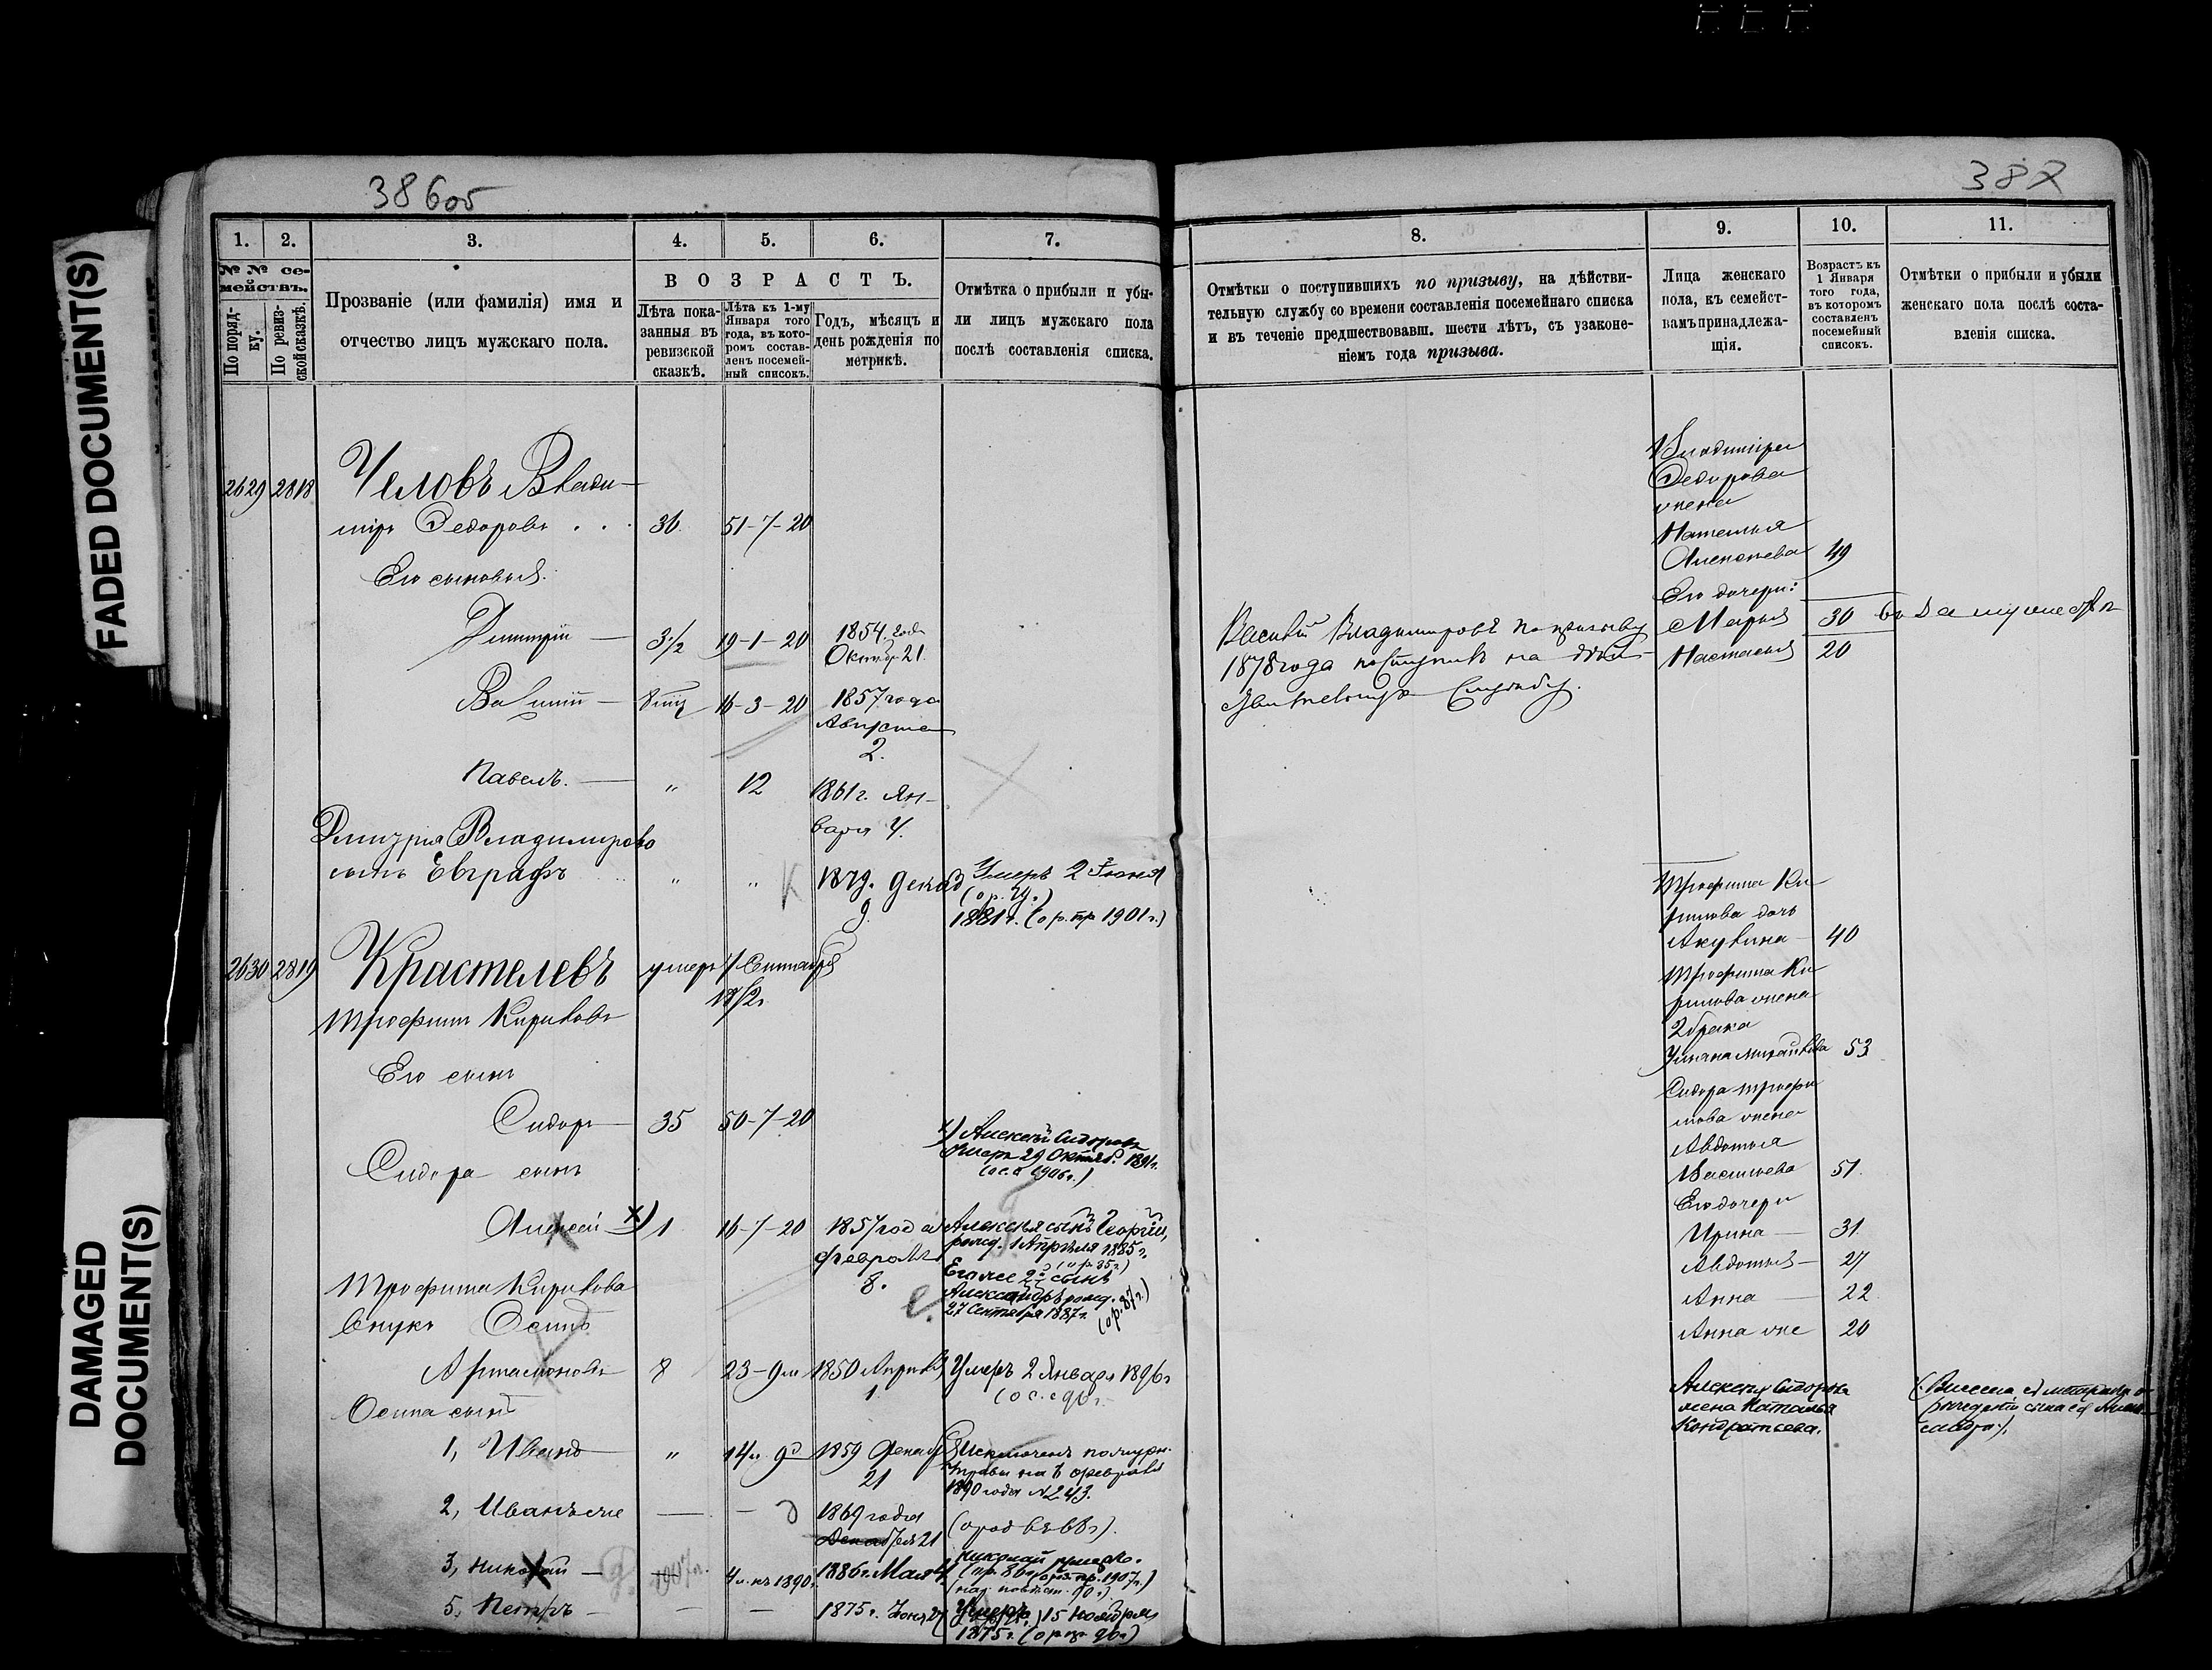 386об
387
FADED DOCUMENT(S)
DAMAGED DOCUMENT(S)
1. 2. 3. 4. 5. 6. 7.
№ № се-
мействъ.
По поряд-
ку.
По ревиз-
ской сказкѣ.
Прозваніе (или фамилія) имя и
отчество лицъ мужскаго пола.
ВОЗРАСТЪ.
Лѣта пока-
занныя въ
ревизской
сказкѣ.
Лѣта къ 1-му
Января того
года, въ кото-
ромъ состав-
ленъ посемей-
ный списокъ.
Годъ, мѣсяцъ и
день рожденія по
метрикѣ.
Отмѣтка о прибыли и убы-
ли лицъ мужскаго пола
послѣ составленія списка.
2629 2818 Человъ Влади-
міръ Федоровъ 36 51-7-20
Его сыновья:
Димитрій 3½ 19-1-20 1854 года
Октября 21.
Василій 16-3-20 1857 года
Августа
2.
Павелъ. " 12 1861 г. Ян-
варя 4.
Дмитрія Владимирово
сынъ Евграфъ " " 187 Декаб
9.
Умеръ 2 Іюня
1881 г. (ор. пр 1901 г.)
2630 2819 Крастелевъ умеръ Сентября
Трофимъ Кириловъ
Его сынъ
Сидоръ 35 50-7-20
Сидора сынъ
х) Алексѣй Сидоровъ
Умеръ 29 Октяб. 1891 г.
Алексѣй х) 1 16-7-20 1857 года
Февраля
8.
Алексѣя сынъ Георгій,
рожд. 1 Апрѣля 1885 г.
Его же 2й сынъ
Александръ рожд.
27 Сентября 1887 г.
(ор. 87 г.)
Трофима Кирилова
внукъ Осипъ
Артамоновъ 8 23-9 м 1850 Апрѣля
1.
Умеръ 2 Января 1896 г
Осипа сынъ
1, Иванъ " 14 л. 9 1859 Декаб
21
Исключенъ по
на 6 февраля
1890 года № 243.
2, Иванъ же — — 1869 года
Декабря 21
3, Николай — 4 л. къ 1890 г. 1886 г. Мая
Николай умеръ.
5, Петръ — — — 1875 г. Іюня 27
Умеръ 15 Ноября
1875 г.
8. 9. 10. 11.
Отмѣтки о поступившихъ по призыву, на дѣйстви-
тельную службу со времени составленія посемейнаго списка
и въ теченіе предшествовавш. шести лѣтъ, съ узаконе-
ніемъ года призыва.
Лица женскаго
пола, къ семейст-
вамъ принадлежа-
щія.
Возрастъ къ
1 Января
того года,
въ которомъ
составленъ
посемейный
списокъ.
Отмѣтки о прибыли и убыли
женскаго пола послѣ соста-
вленія списка.
Василій Владимировъ по призыву
1878 года поступилъ на дѣй-
ствительную службу.
Владиміра
Федорова
жена
Наталья
Алексѣева 49
Его дочери:
Марья 30 въ замужествѣ
Настасья 20
Трофима Ки-
рилова дочь
Акулина 40
Трофима Ки-
рилова жена
2 брака
Ульяна Михайлова 53
Сидора Трофи-
мова жена
Авдотья
Васильева 51.
Его дочери
Ирина 31.
Авдотья 27
Анна 22.
Анна же 20
Алексѣя Сидорова
жена Наталья
Кондратьева.